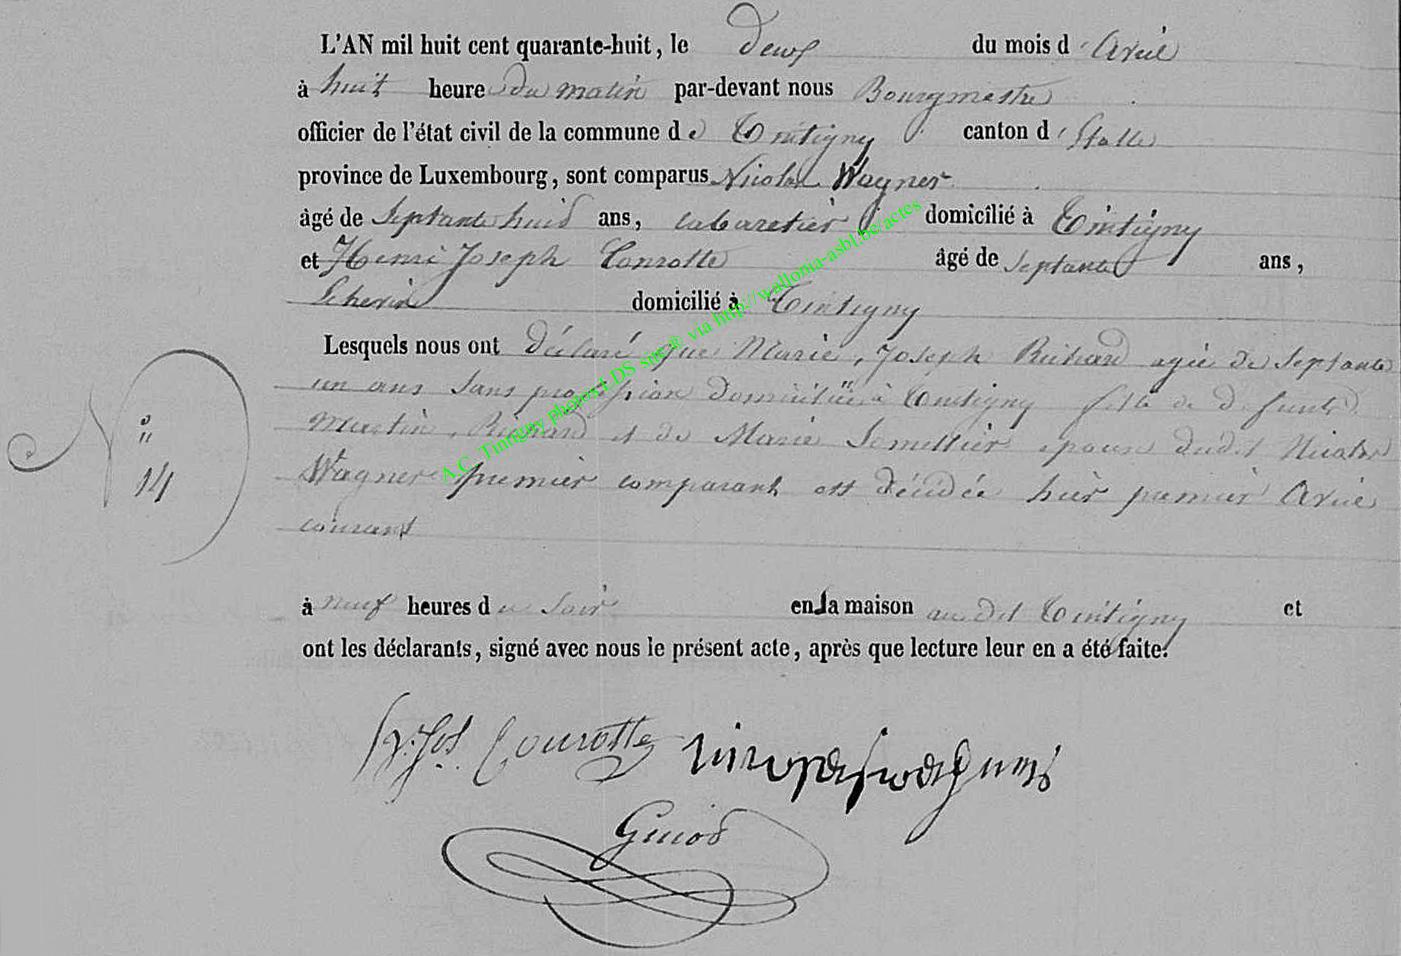 L'AN mil huit cent quarante-huit, le deux du mois d'Avril
à huit heure du matin par-devant nous Bourgmestre
officier de l'état civil de la commune de Tintigny canton d'Etalle
province de Luxembourg, sont comparus Nicolas Wagner
âgé de septante huit ans, cabaretier domicilié à Tintigny
et Henri Joseph Conrotte âgé de septante ans,
Echevin domicilié à Tintigny
Lesquels nous ont déclaré que Marie, Joseph Richard agée de septante
un ans sans profession domiciliée à Tintigny fille de défunts
Martin Richard et de Marie épouse dudit Nicolas
Wagner premier comparant est décédée hièr premier Avril
courant
N° 14
à neuf heures du soir en la maison au dit Tintigny et
ont les déclarants, signé avec nous le présent acte, après que lecture leur en a été faite.
h. Jos. Conrotte nicolas wagner
Guiod
A.C. Tintigny photos LDS snc® via http://wallonia-asbl.be/actes